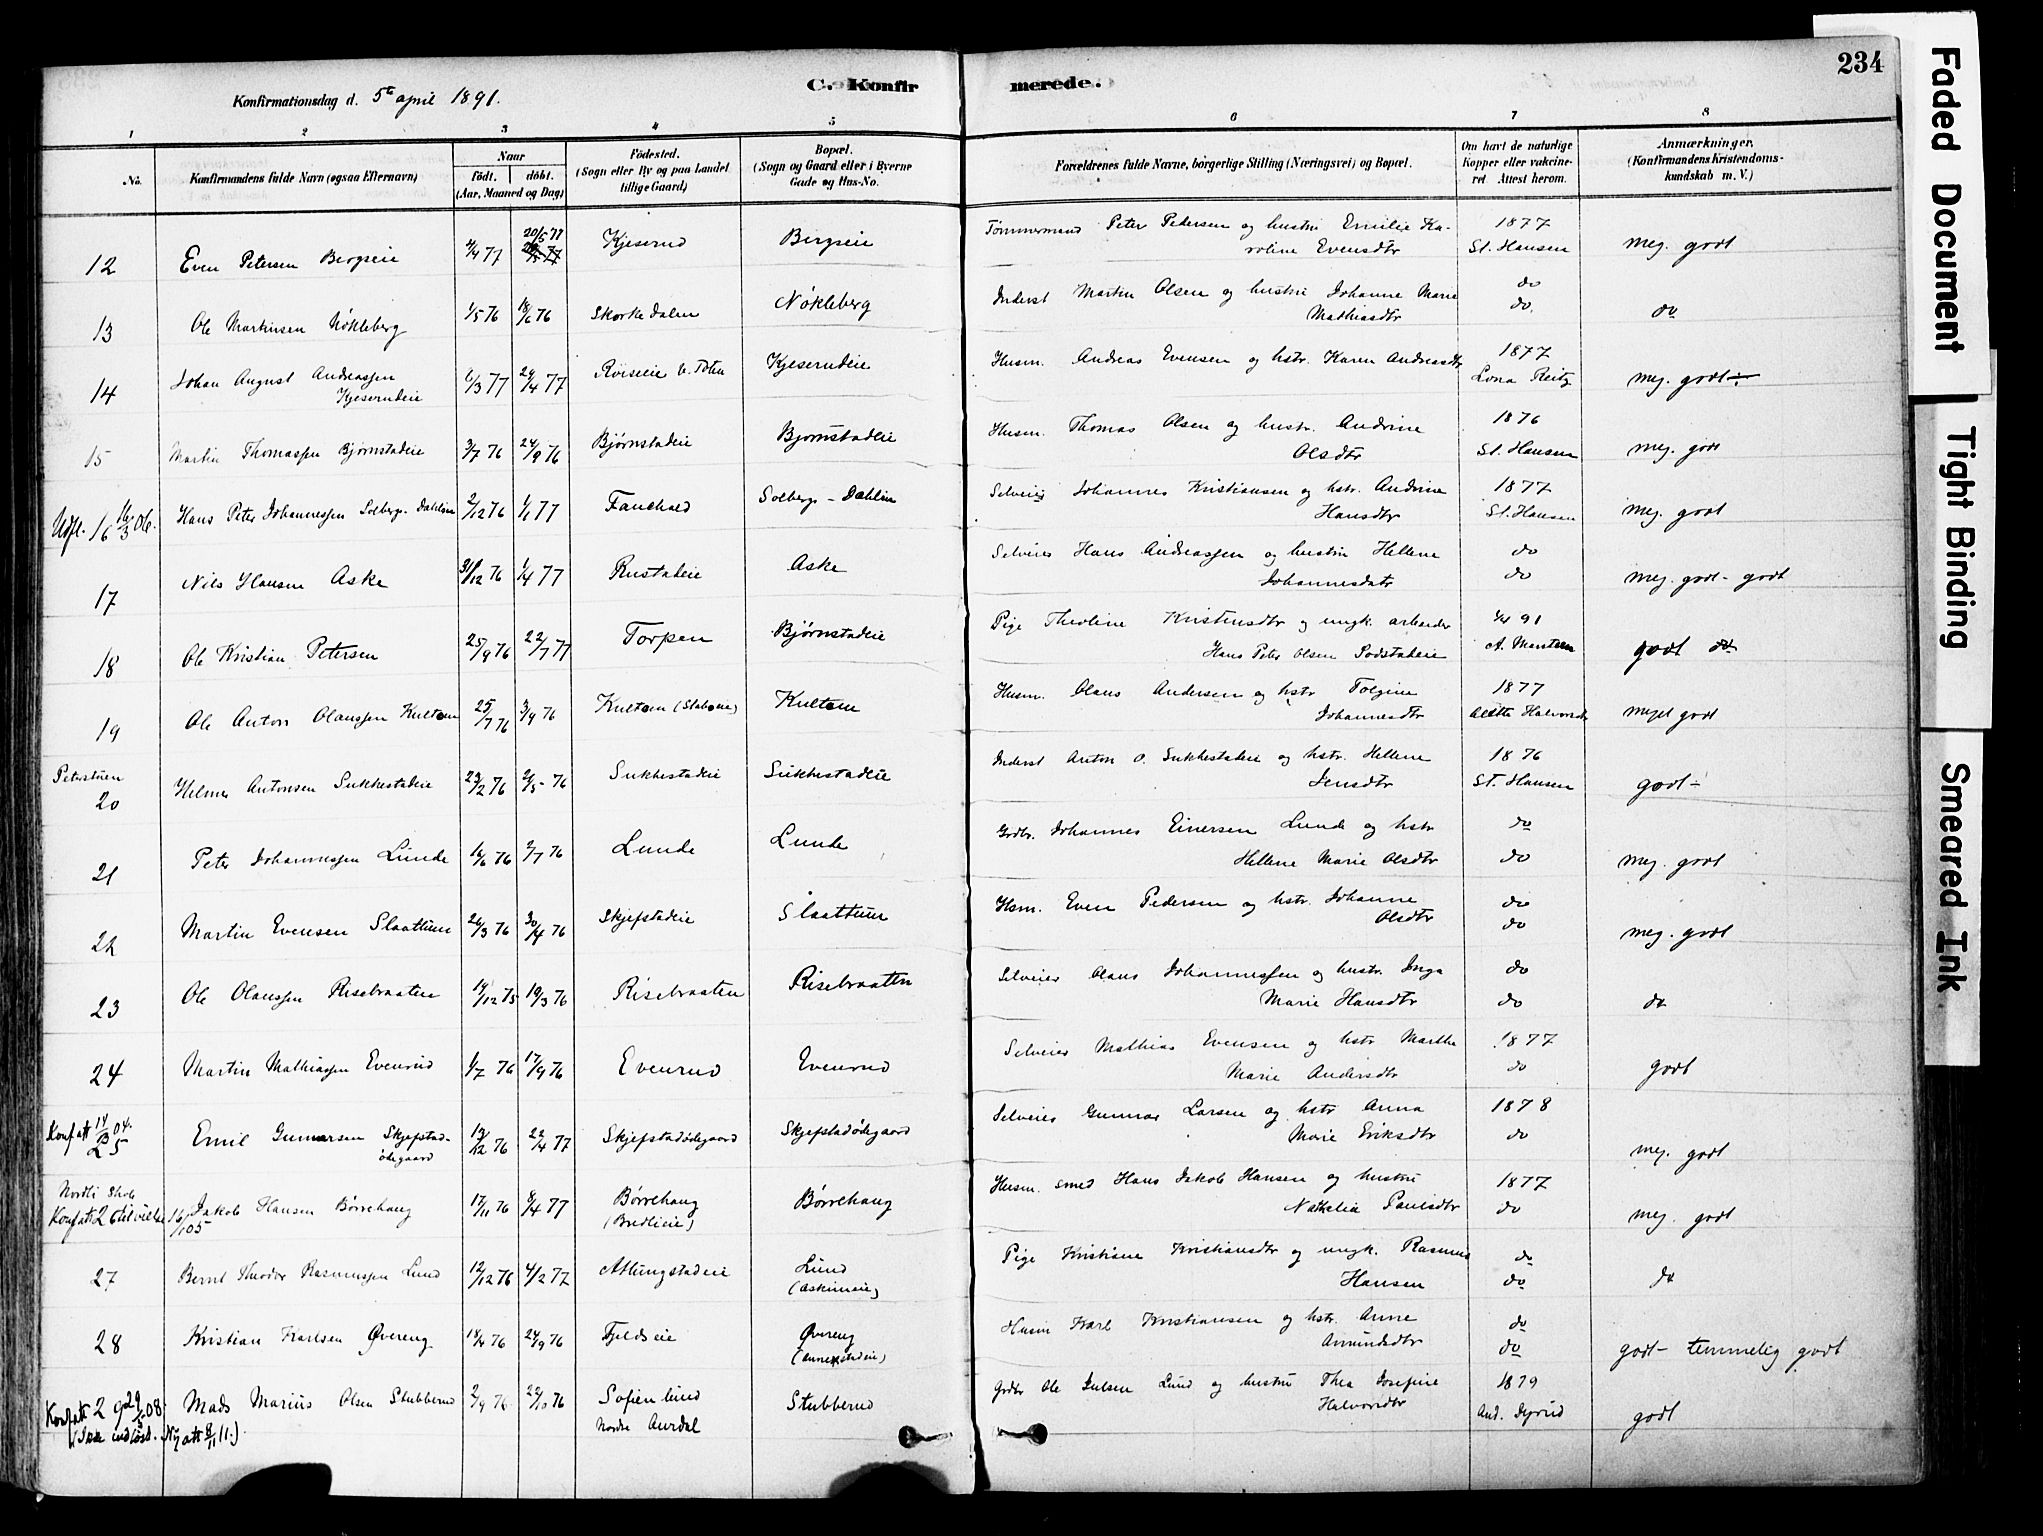 234
C. Konfirmerede.
Konfirmationsdag d. 5te april 1891.
1 2 3 4 5 6 7 8
No. Konfirmandens fulde Navn (ogsaa Efternavn) Naar født. døbt. (Aar, Maaned og Dag) Fødested. (Sogn eller By og paa Landet tillige Gaard) Bopæl. (Sogn og Gaard eller i Byerne Gade og Hus-No. Forældrenes fulde Navne, borgerlige Stilling (Næringsvei) og Bopæl. Om havt de naturlige Kopper eller vakcineret Attest herom. Anmærkninger. (Konfirmandens Kristendomskundskab m. V.)
12 Even Petersen Bergseie 4/4 77 20/5 77 Kjeserud Bergseie Tømmermand Peter Petersen og hustru Emilie Karoline Evensdtr 1877 St. Hansen meg. godt
13 Ole Martinsen Nøkleberg 1/5 76 18/6 76 Skorkedalen Nøkleberg Inderst Martin Olsen og hustru Johanne Marie Mathiasdtr do do. do
14 Johan August Andreassen Kjeserudeie 6/3 77 29/4 77 Røiseeie V. Toten Kjeserudeie Husm. Andreas Evensen og hstr. Karen Andreasdtr 1877 Lona Reitz meg. godt
15 Martin Thomassen Bjørnstadeie 3/7 76 24/9 76 Bjørnstadeie Bjørnstadeie Husm. Thomas Olsen og hustr. Andrine Olsdtr 1876 St. Hansen meg. godt
Udfl. 16/3 06. 16 Hans Peter Johannessen Solbergs-Dahlin 2/12 76 1/1 77 Fauchald Solbergs-Dahlin Selveier Johannes Kristiansen og hstr. Andrine Hansdtr 1877 St. Hansen meg. godt
17 Nils Hansen Aske 31/12 76 1/4 77 Rustadeie Aske Selveier Hans Andreassen og hustru Hellene Johannesdatr do do meg. godt - godt
18 Ole Kristian Petersen 25/9 76 22/7 77 Torpen Bjørnstadeie Pige Theoline Kristensdtr og ungk. arbeider Hans Peter Olsen Sodstadeie 4/4 91 godt
19 Ole Anton Olaussen Kultom 25/7 76 3/9 76 Kultom Kultom Husm. Olaus Andersen og hstr Tolgine Johannesdtr 1877 meget godt
Peterstuen
20 Helmer Antonsen Sukkestadeie 22/2 76 2/5 - 76 Sukkestadeie Sukkestadeie Inderst Anton O. Sukkestadeie og hstr. Hellene Jensdtr 1876 St. Hansen godt -
21 Peter Johannessen Lunde 16/6 76 2/7 76 Lunde Lunde Grdbr. Johannes Einersen Lunde og hstr Hellene Marie Olsdtr do do meg. godt
22 Martin Evensen Slaattum 26/3 76 30/4 76 Skjefstadeie Slaattum Hsm. Even Pedersen og hstr. Johanne Olsdtr do do meg. godt
23 Ole Olaussen Risebraaten 14/12 75 19/3 76 Risebraaten Risebraaten Selveier Olaus Johannessen og hustr. Inga Marie Hansdtr do do do
24 Martin Mathiassen Evenrud 1/7 76 17/9 76 Evenrud Evenrud Selveier Mathias Evensen og hstr Marthe Marie Andersdtr 1877 do godt
Konf att 14/3 04. 25 Emil Gunnarsen Skjefstadødegaard 12/12 76 22/4 77 Skjefstadødegaard Skjefstadødegaard Selveier Gunnar Larsen og hstr Anna Marie Eriksdtr 1878 do meg. godt
Konfatt 26 til vielse 16/1 05 Jakob Hansen Børrehaug 17/11 76 8/4 77 Børrehaug (Bredlieie) Børrehaug Husm. smed Hans Jakob Hansen og hustru Nathalia Paulsdtr 1877 do meg. godt
27 Bernt Theodor Rasmussen Lund 12/12 76 4/2 77 Allungstadeie Lund (Askimeie) Pige Kristiane Kristiansdtr og ungk. Rasmus Hansen do do do
28 Kristian Karlsen Øvereng 18/4 76 24/9 76 Fjeldseie Øvereng (Annexstadeie) Husm Karl Kristiansen og hstr. Anne Amundsdtr do do godt - temmelig godt
Konfatt 29 29/5 08. (Ikke indløst. Ny att 8/11 11.) Mads Marius Olsen Stubberud 2/9 76 22/10 76 Sofienlund Nordre Aurdal Stubberud Grdbr Ole Julsen Lund og hustru Thea Josefine Halvorsdtr 1879 And. Dyrud godt
Faded Document
Tight Binding
Smeared Ink